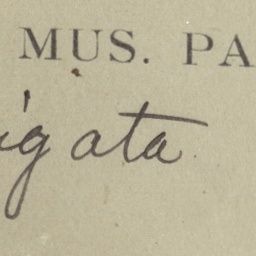 MUS. PA
igata